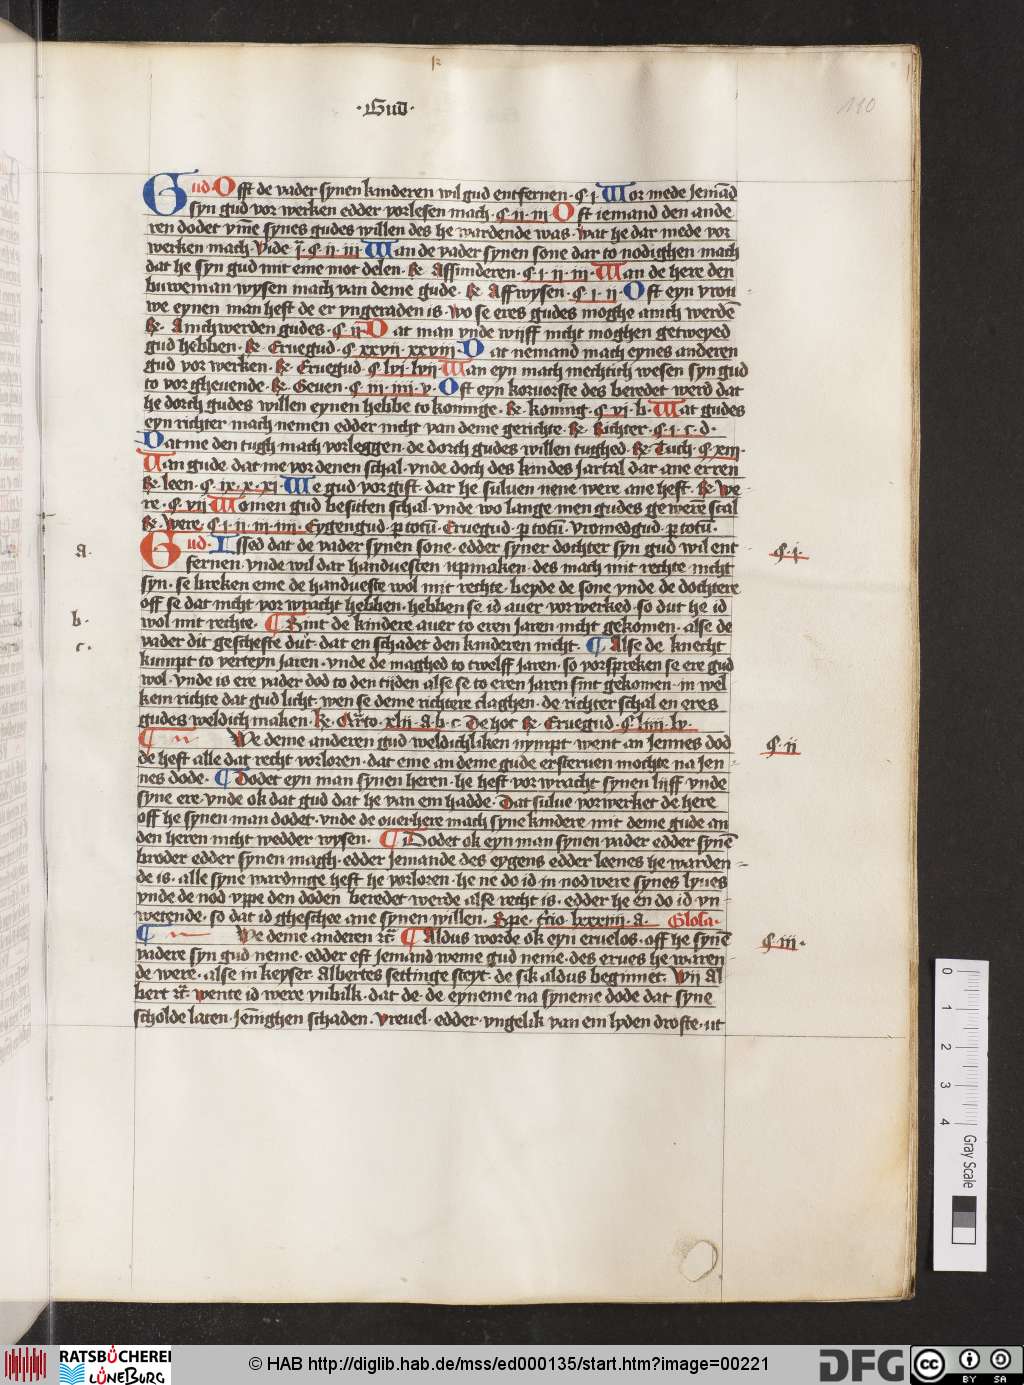 ·Gud·
110
Gud· Offt de vader synen kinderen wil gud entfernen· ₵ i· Wor mede jemād
syn gud vor werken edder vorlesen mach· ₵ ii· iii Oft iemand den ande
ren dodet vm̄e synes gudes willen des he wardende was· wat he dar mede vor
werken mach· Vide j̄· ₵ ii· iii· Wan de vader synen sone dar to nodighen mach
dat he syn gud mit eme mot delen· Re Affsunderen· ₵ i· ii· iii· Wan de here den
buweman wysen mach van deme gude· Re Affwysen· ₵ i· ii· Oft eyn vrou
we eynen man heft de er yngeraden is· wo se eres gudes moghe anich werdē
Re· Anichwerden gudes· ₵ ii· Dat man vnde wijff nicht moghen getweyed
gud hebben· Re Eruegud· ₵ xxvii· xxviii· Dat nemand mach eynes anderen
gud vor werken· Re Eruegud· ₵ lvi· lvii· Wan eyn mach mechtich wesen syn gud
to vor gheuende· Re Geuen· ₵ iii· iiii· v· Oft eyn korvorste des beredet werd dat
he dorch gudes willen eynen hebbe to koninge· Re koning· ₵ vi· b· Wat gudes
eyn richter mach nemen edder nicht van deme gerichte· Re Richter· ₵ i· c· d·
Dat me den tugh mach vorleggen· de dorch gudes willen tughed· Re Tuch· ₵ xiii·
Van gude dat me vor denen schal· vnde doch des kindes jartal dar ane erren
Re leen· ₵ ix· x· xi· We gud vor gift· dar he suluen nene were ane heft· Re We
re· ₵ vii Women gud besitten schal· vnde wo lange men gudes gewerē scal
Re Were ₵ i· ii· iii· iiii· Eygengud· p totū· Eruegud· p totū· vromedgud· p totū·
Gud· Issed dat de vader synen sone· edder syner dochter syn gud wil ent
fernen· vnde wil dar handuesten vpmaken· des mach mit rechte nicht
₵· i·
a·
syn· se breken eme de handueste wol mit rechte· beyde de sone vnde de dochtere
off se dat nicht vor wracht hebben· hebben se id auer vor werked· so dut he id
b·
wol mit rechte· ¶ Sint de kindere auer to eren jaren nicht gekomen· alse de
c·
vader dit gescheffte dut· dat en schadet den kinderen nicht· ¶ Alse de knecht
kumpt to verteyn jaren· vnde de maghed to twelff jaren· so vorspreken se ere gud
wol· vnde is ere vader dod to den tijden alse se to eren jaren sint gekomen· in wel
kem richte dat gud licht· wen se deme richtere claghen· de richter schal en eres
gudes weldich maken· Re Arto· xlii· a· b· c· De hoc Re Eruegud· ₵ liiii· lv·
¶ We deme anderen gud weldichliken nympt· went an jennes dod
₵· ii
de heft alle dat recht vorloren· dat eme an deme gude ersteruen mochte na jen
nes dode· ¶ Dodet eyn man synen heren· he heft vor wracht synen lijff vnde
syne ere· vnde ok dat gud dat he van em hadde· Dat sulue vorwerket de here
off he synen man dodet· vnde de ouerhere mach syne kindere mit deme gude an
den heren nicht wedder wysen· ¶ Dodet ok eyn man synen vader edder synē
broder edder synen magh· edder jemande des eygens edder leenes he warden
de is· alle syne wardinge heft he vorloren· he ne do id in nodwere synes lyues
vnde de nod vppe den doden beredet werde alse recht is· edder he en do id vn
wetende· so dat id gheschee ane synen willen· lxxxiiii· a· Glosa·
¶ We deme anderen ꝛc̄· ¶ Aldus worde ok eyn eruelos· off he synē
₵· iii·
vadere syn gud neme· edder eft jemand weme gud neme· des erues he waren
de were· alse in keyser Albertes settinge steyt· de sik aldus beginnet· Wij Al
bert ꝛc̄· wente id were vnbilk· dat de· de eyneme na syneme dode dat syne
scholde laten· jenīghen schaden· vreuel· edder vngelik van em lyden drofte· ut
0 1 2 3 4 Gray Scale
RATSBÜCHEREI
LÜNEBURG
© HAB http://diglib.hab.de/mss/ed000135/start.htm?image=00221
DFG
cc BY SA